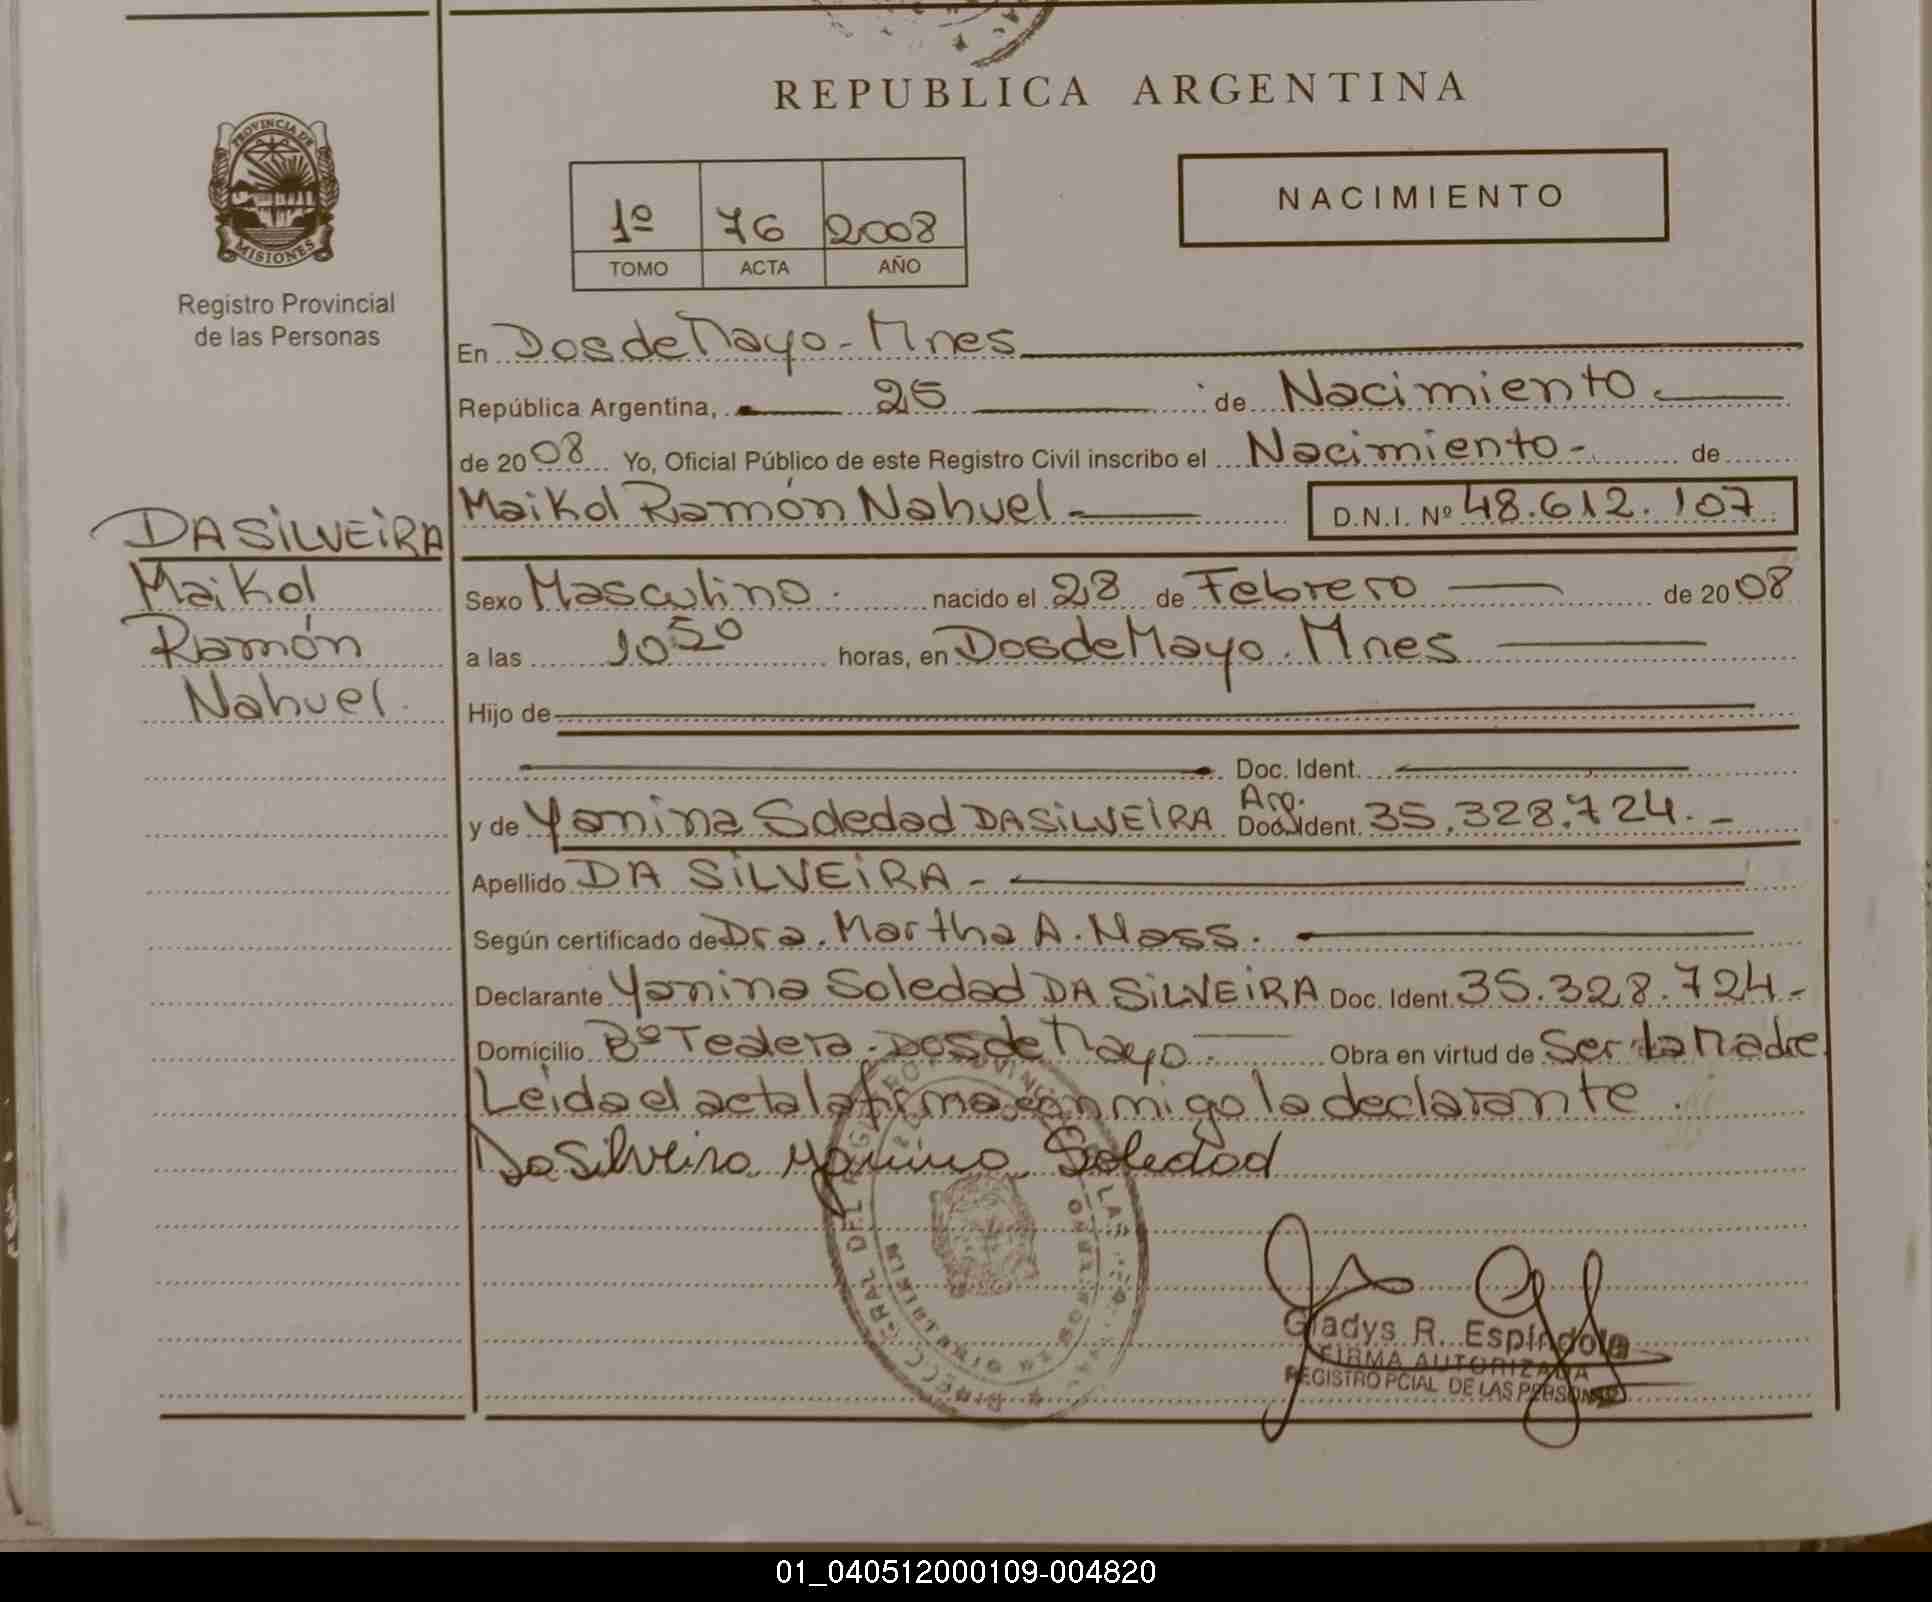 REPUBLICA ARGENTINA
PROVINCIA DE
MISIONES
Registro Provincial
de las Personas
1º 76 2008
TOMO ACTA AÑO
NACIMIENTO
En Dos de Mayo - Mnes
República Argentina, 25 de Nacimiento
de 2008 Yo, Oficial Público de este Registro Civil inscribo el Nacimiento - de
Maikol Ramón Nahuel - D.N.I. Nº 48.612.107
DA SILVEIRA
Maikol
Ramón
Nahuel.
Sexo Masculino. nacido el 28 de Febrero de 2008
a las 10 50 horas, en Dos de Mayo. Mnes
Hijo de
Doc. Ident.
y de Yanina Soledad DA SILVEIRA Arg. Doc. Ident. 35.328.724. -
Apellido DA SILVEIRA -
Según certificado de Dra. Martha A. Mass.
Declarante Yanina Soledad DA SILVEIRA Doc. Ident. 35.328.724 -
Domicilio Bº Tealera - Dos de Mayo - Obra en virtud de Ser la Madre
Leida el acta la firma conmigo la declarante.
Da Silveira Yanina Soledad
Gladys R. Espíndola
FIRMA AUTORIZADA
REGISTRO PCIAL DE LAS PERSONAS
01_040512000109-004820